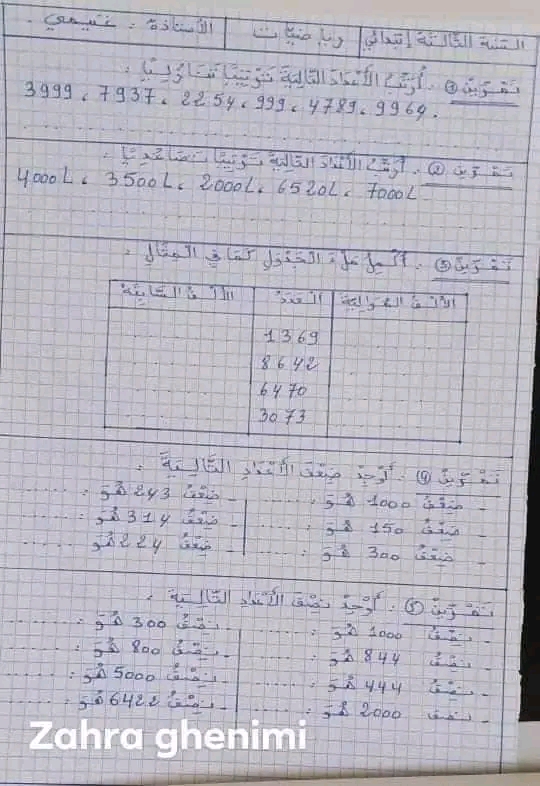 السنة الثالثة إبتدائي | رياضيات | الأستاذة : غنيمي
تمرين ①: أرتب الأعداد التالية ترتيبا تنازليا :
3999 ، 7937 ، 2254 ، 999 ، 4789 ، 9964 .
تمرين ②: أرتب الأعداد التالية ترتيبا تصاعديا :
4000L ، 3500L ، 2000L ، 6520L ، 7000L
تمرين ③: أكمل ملء الجدول كما في المثال :
الألف الموالية | العدد | الألف السابقة
1369
8642
6470
3073
تمرين ④: أوجد ضعف الأعداد التالية :
- ضعف 1000 هو : ........ - ضعف 243 هو : ........
- ضعف 150 هو : ........ - ضعف 314 هو : ........
- ضعف 300 هو : ........ - ضعف 224 هو : ........
تمرين ⑤: أوجد نصف الأعداد التالية :
- نصف 1000 هو : ........ - نصف 300 هو : ........
- نصف 844 هو : ........ - نصف 800 هو : ........
- نصف 444 هو : ........ - نصف 5000 هو : ........
- نصف 2000 هو : ........ - نصف 6422 هو : ........
Zahra ghenimi